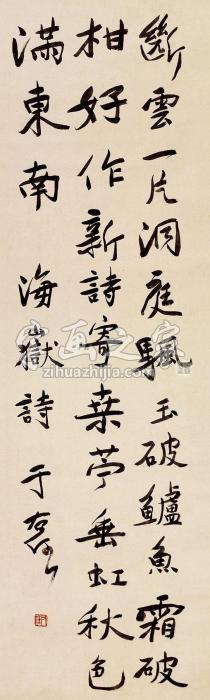 斷雲一片洞庭颿玉破鱸魚霜破
柑好作新詩寄桑苧垂虹秋色
滿東南 海嶽詩 于右任
字画之家
zihuazhijia.com